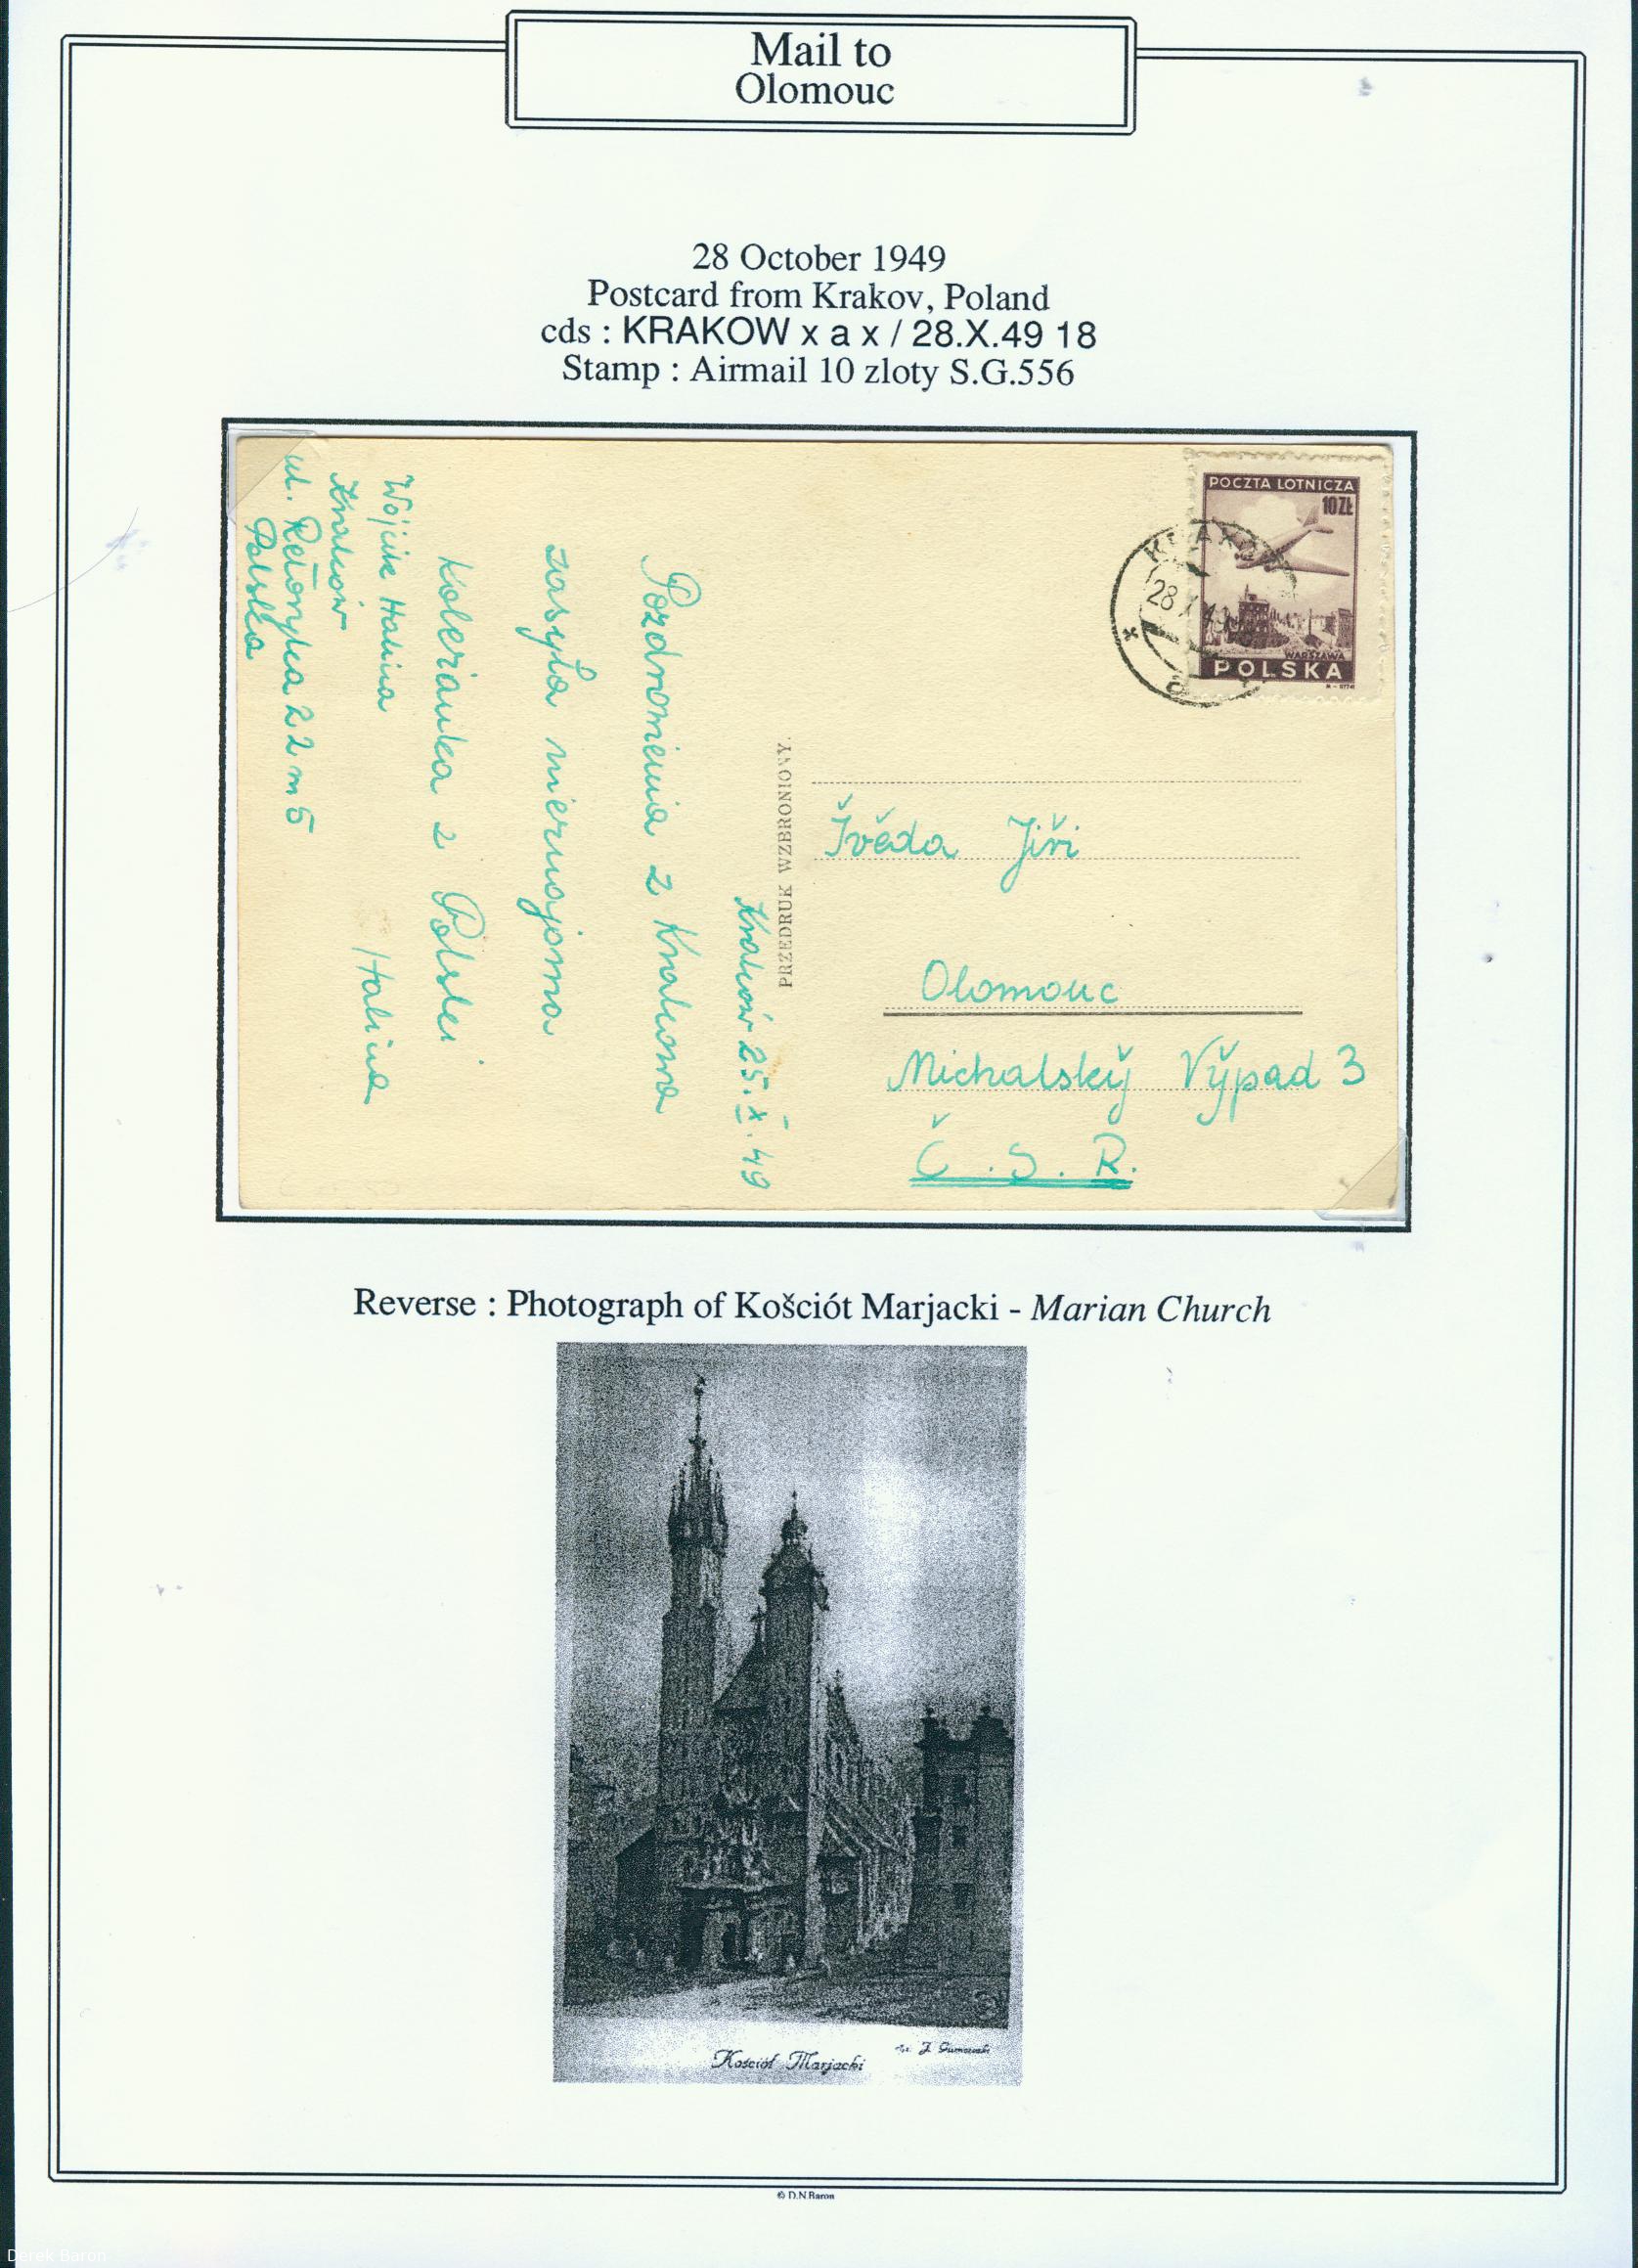 Mail to
Olomouc
28 October 1949
Postcard from Krakov, Poland
cds : KRAKOW x a x / 28.X.49 18
Stamp : Airmail 10 zloty S.G.556
POCZTA LOTNICZA
10 ZŁ
WARSZAWA
POLSKA
KRAKO
28 X 49
a
PRZEDRUK WZBRONIONY.
Švěda Jiři
Olomouc
Michalský Výpad 3
Č.S.R.
Kraków 25.X.49
Pozdrowienia z Krakowa
zasyła nieznajoma
koleżanka z Polski
Halina
Wójcik Halina
Kraków
ul. Retoryka 22 m 5
Polska
Reverse : Photograph of Košciót Marjacki - Marian Church
Kościół Marjacki
J. Gumowski
© D.N.Baron
Derek Baron